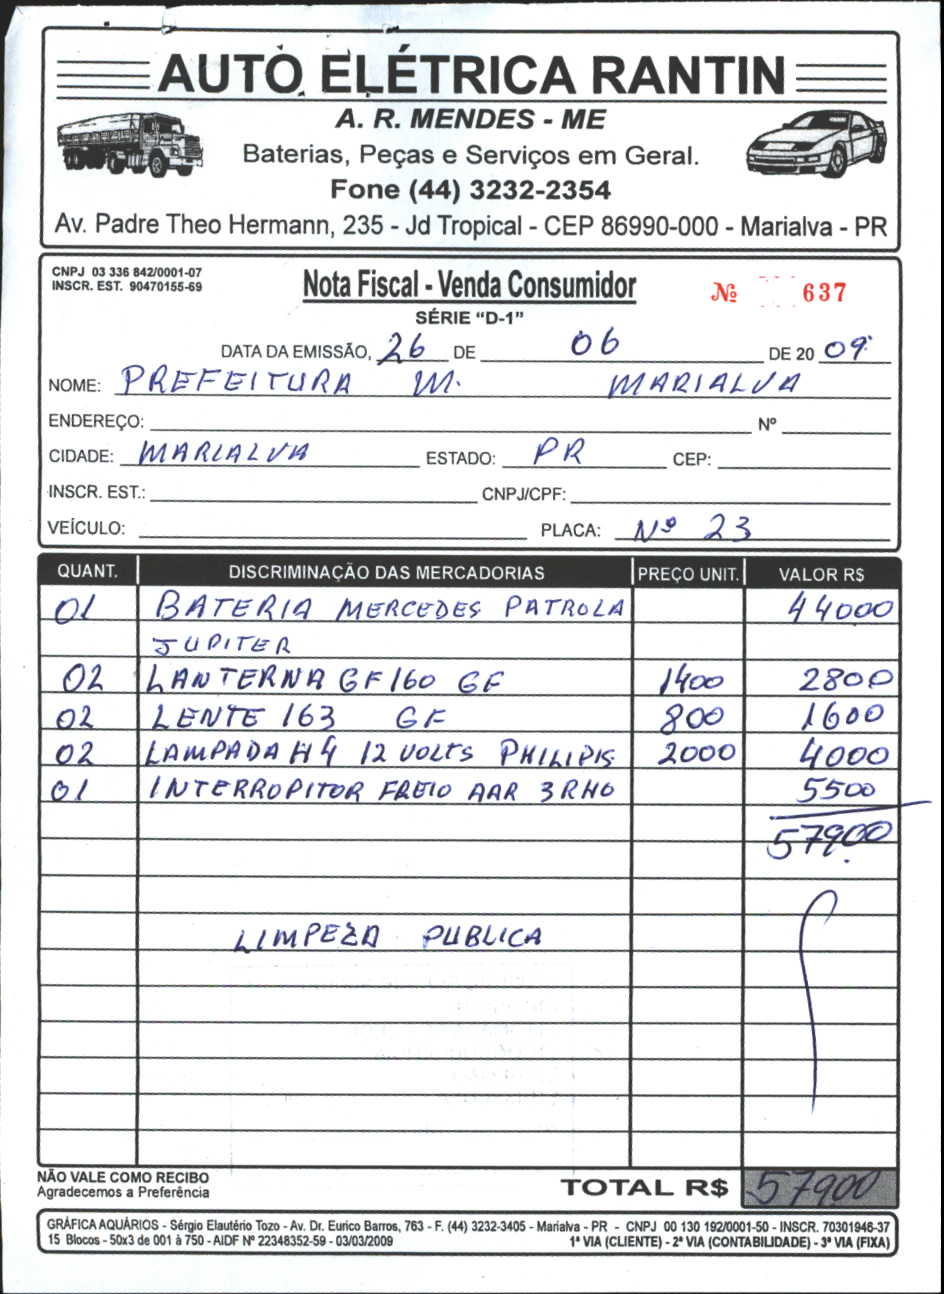 AUTO ELÉTRICA RANTIN
A. R. MENDES - ME
Baterias, Peças e Serviços em Geral.
Fone (44) 3232-2354
Av. Padre Theo Hermann, 235 - Jd Tropical - CEP 86990-000 - Marialva - PR
CNPJ 03 336 842/0001-07
INSCR. EST. 90470155-69
Nota Fiscal - Venda Consumidor
Nº 637
SÉRIE "D-1"
DATA DA EMISSÃO, 26 DE 06 DE 20 09
NOME: PREFEITURA M. MARIALVA
ENDEREÇO: Nº
CIDADE: MARIALVA ESTADO: PR CEP:
INSCR. EST.: CNPJ/CPF:
VEÍCULO: PLACA: Nº 23
QUANT. DISCRIMINAÇÃO DAS MERCADORIAS PREÇO UNIT. VALOR R$
01 BATERIA MERCEDES PATROLA 44000
JUPITER
02 LANTERNA GF160 GF 1400 2800
02 LENTE 163 GF 800 1600
02 LAMPADA H4 12 VOLTS PHILIPIS 2000 4000
01 INTERROPITOR FREIO 5500
57900
LIMPEZA PUBLICA
NÃO VALE COMO RECIBO
Agradecemos a Preferência
TOTAL R$ 57900
GRÁFICA AQUÁRIOS - Sérgio Elautério Tozo - Av. Dr. Eurico Barros, 763 - F. (44) 3232-3405 - Marialva - PR - CNPJ 00 130 192/0001-50 - INSCR. 70301946-37
15 Blocos - 50x3 de 001 à 750 - AIDF Nº 22348352-59 - 03/03/2009 1ª VIA (CLIENTE) - 2ª VIA (CONTABILIDADE) - 3ª VIA (FIXA)